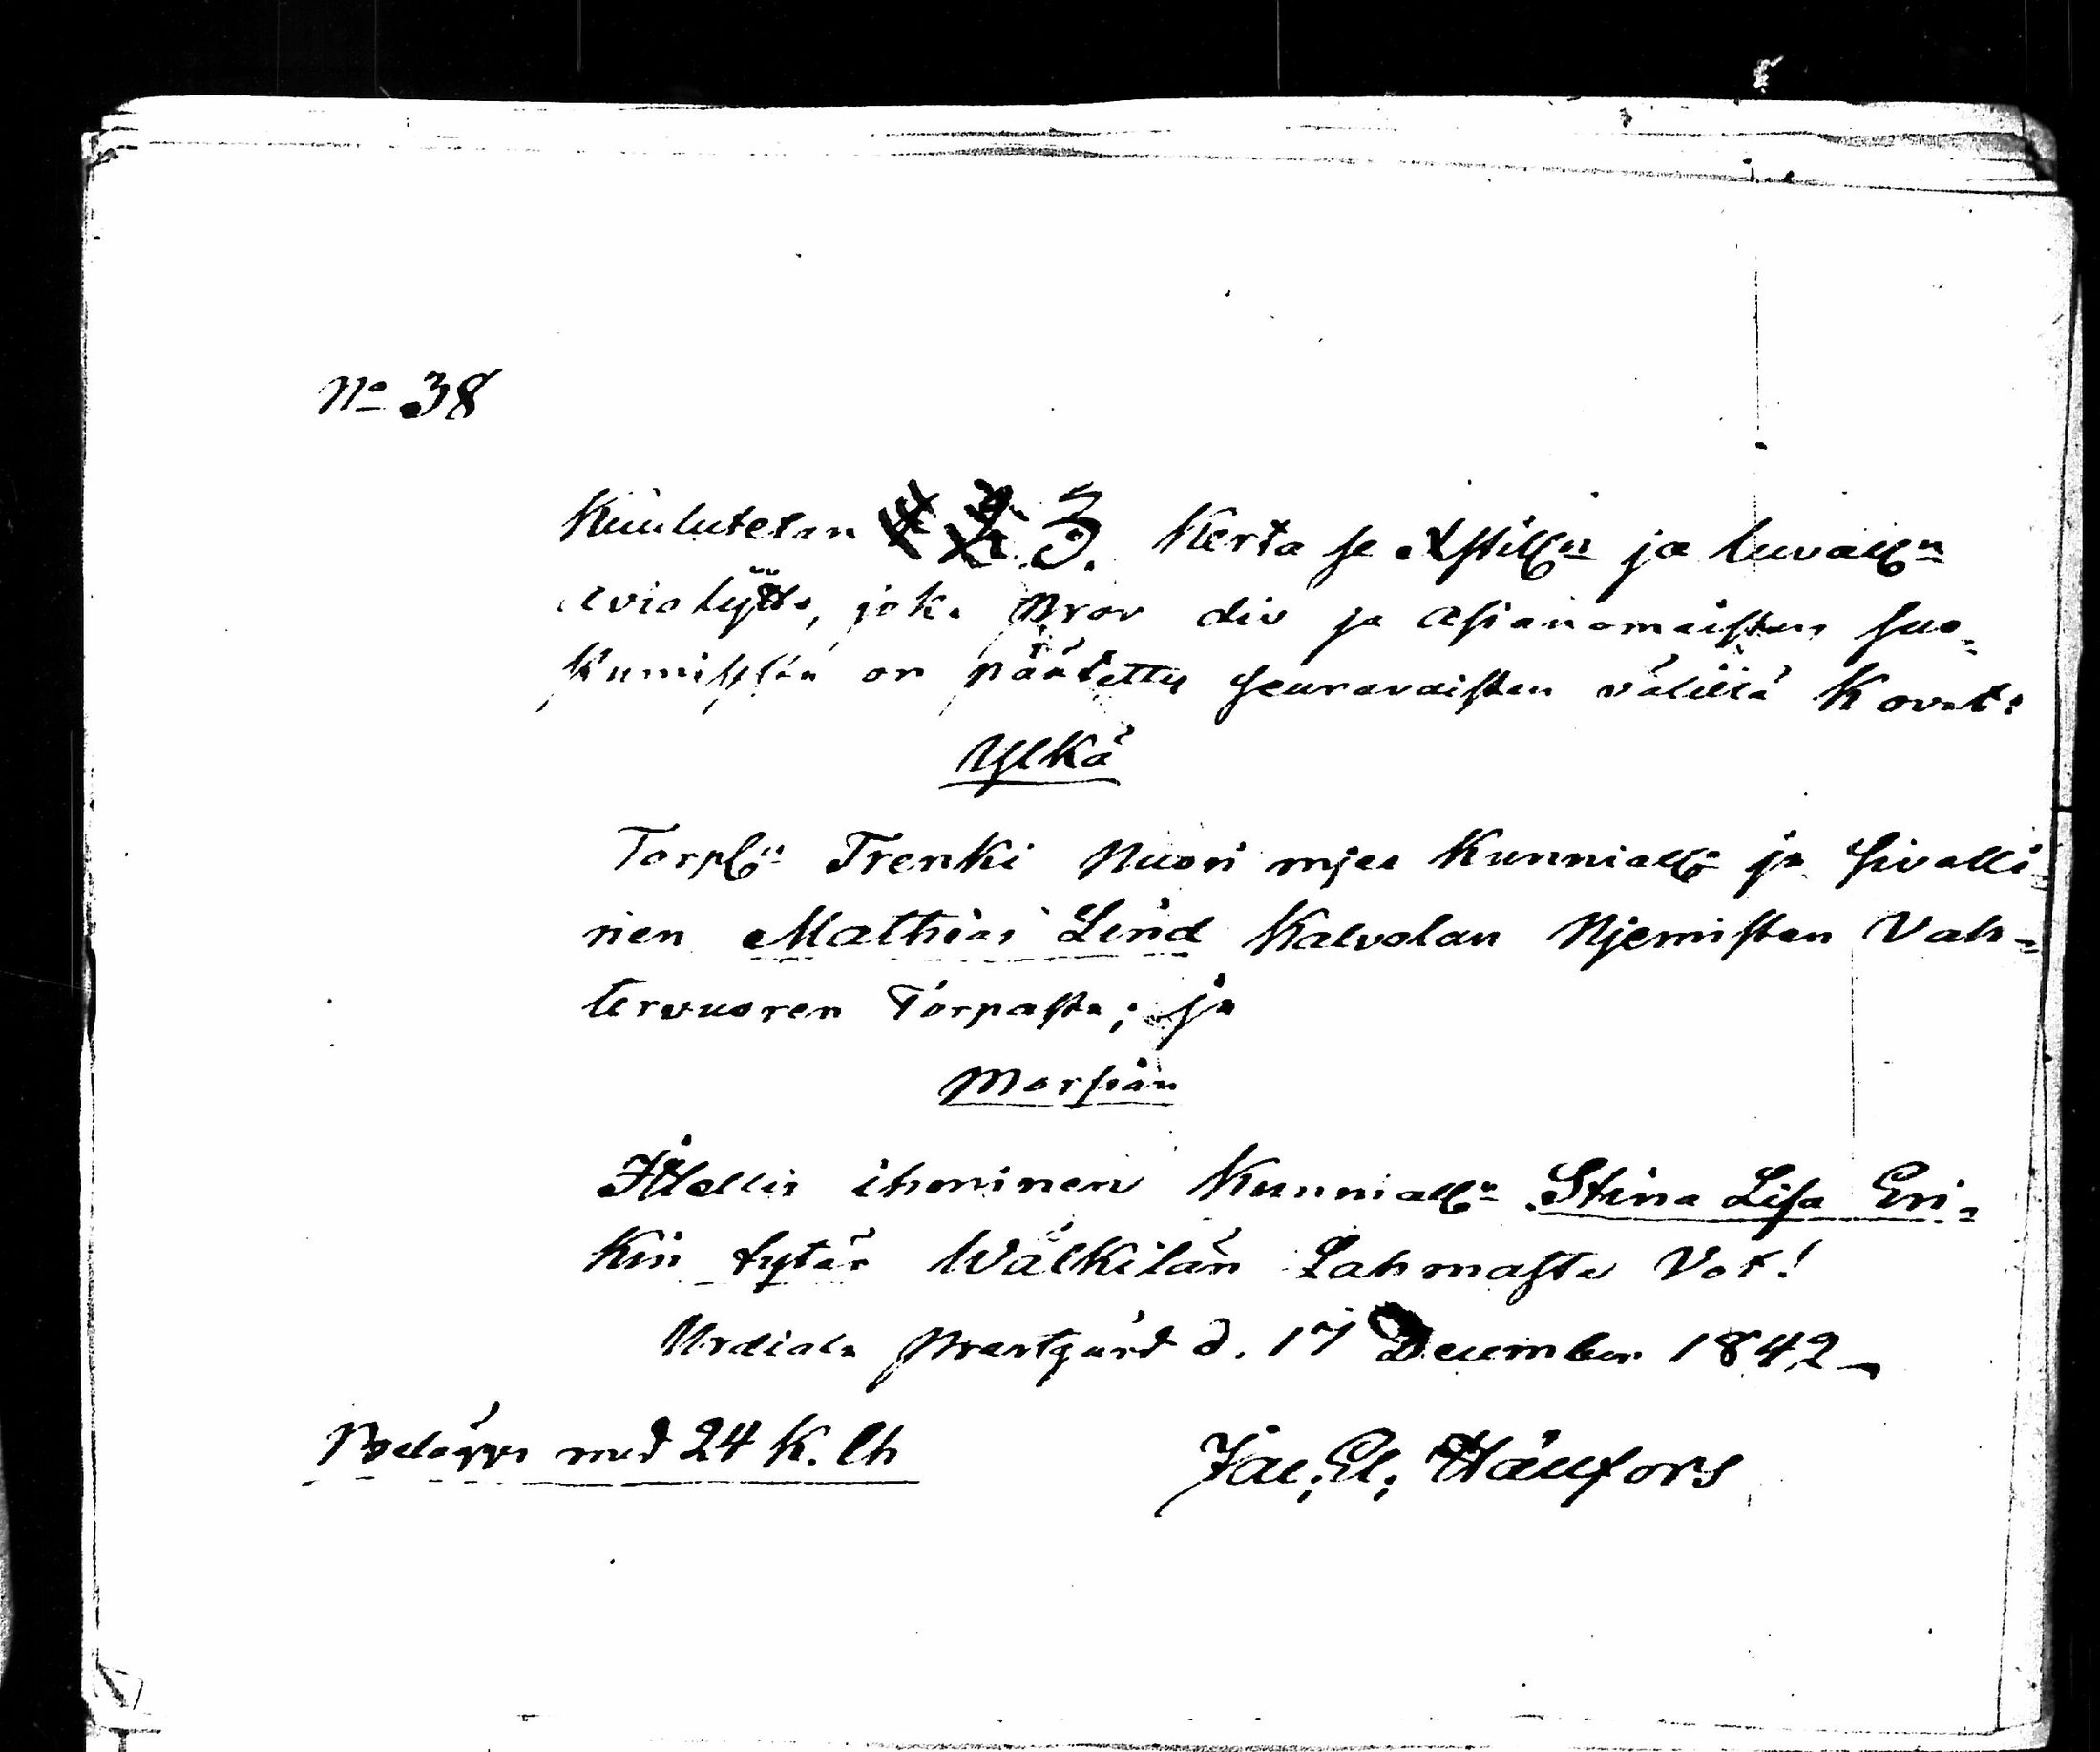 No 38
Kuulutetan 3. Kerta se Xstilln ja luvalln
aviolijtto, joka Prov div ja Asianomaisten suo-
kumisesta on päätetty seuravaisten välillä Kovat:
Ylkä
Torpln Trenki Nuori mjes Kunniall ja sivalli-
nen Mathias Lind Kalvolan Njemisten Vah-
tervuoren Torpasta; ja
Morsian
Itsellis ihminen Kunnialln Stina Lisa Eri-
kin tytär Wälkilän Lahmasta Vot!
Urdiala Prestgård d. 17 December 1842
Belägges med 24 K. Ch
Jac; El;